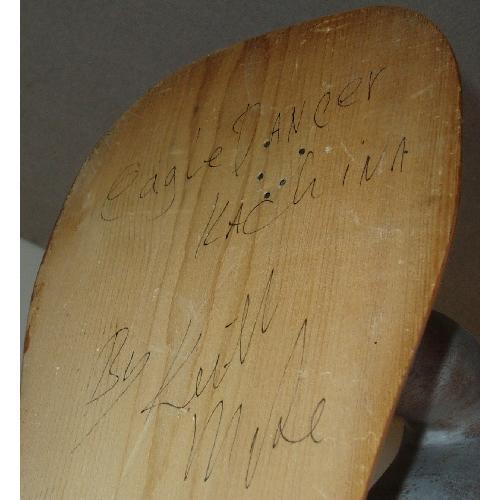 eagle DANCer
KACHiNA
By Keith